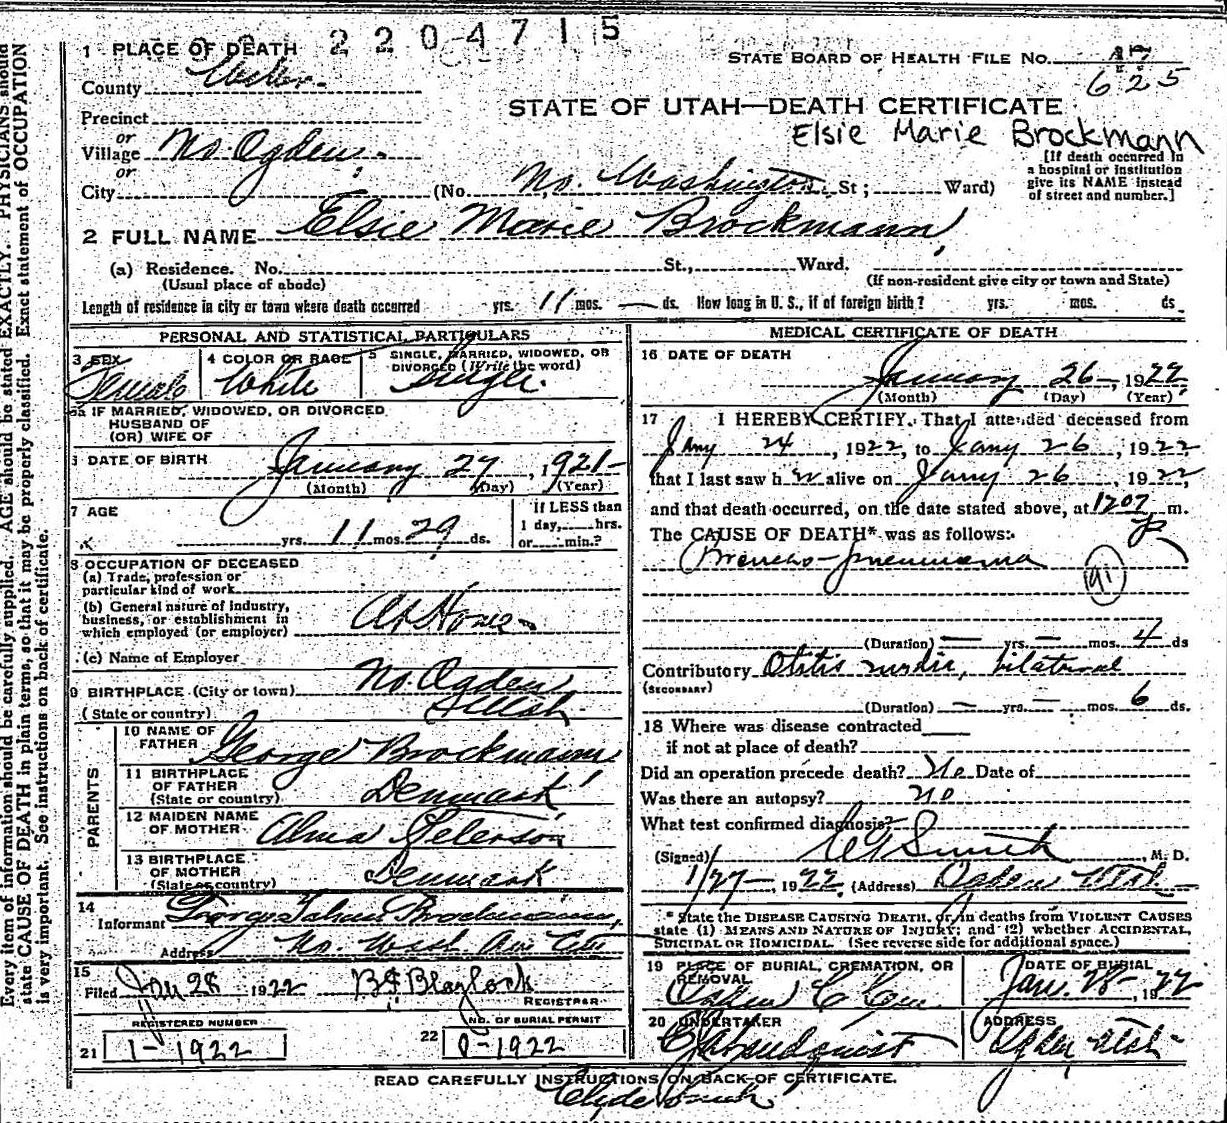 2204715
1 PLACE OF DEATH
STATE BOARD OF HEALTH FILE No. 47
625
County Weber
STATE OF UTAH—DEATH CERTIFICATE
Elsie Marie Brockmann
Precinct
or
Village No. Ogden
or
City (No. No. Washington St; Ward)
[If death occurred in
a hospital or institution
give its NAME instead
of street and number.]
2 FULL NAME Elsie Marie Brockmann
(a) Residence. No. St., Ward.
(Usual place of abode) (If non-resident give city or town and State)
Length of residence in city or town where death occurred yrs. 11 mos. — ds. How long in U. S., if of foreign birth? yrs. mos. ds
PERSONAL AND STATISTICAL PARTICULARS
3 SEX Female
4 COLOR OR RACE White
5 SINGLE, MARRIED, WIDOWED, OR
DIVORCED (Write the word) Single
5a IF MARRIED, WIDOWED, OR DIVORCED
HUSBAND OF
(OR) WIFE OF
6 DATE OF BIRTH January 27, 1921
(Month) (Day) (Year)
7 AGE
yrs. 11 mos. 29 ds.
If LESS than
1 day, hrs.
or min.?
8 OCCUPATION OF DECEASED
(a) Trade, profession or
particular kind of work
(b) General nature of industry,
business, or establishment in
which employed (or employer) At Home
(c) Name of Employer
9 BIRTHPLACE (City or town) No. Ogden
(State or country) Utah
PARENTS
10 NAME OF
FATHER George Brockmann
11 BIRTHPLACE
OF FATHER
(State or country) Denmark
12 MAIDEN NAME
OF MOTHER Alma Peterson
13 BIRTHPLACE
OF MOTHER
(State or country) Denmark
14
Informant George Brockmann,
Address No. Wash. Ave
15
Filed Jan 28 1922
REGISTRAR
REGISTERED NUMBER
21 1-1922
NO. OF BURIAL PERMIT
22 8-1922
MEDICAL CERTIFICATE OF DEATH
16 DATE OF DEATH
January 26, 1922
(Month) (Day) (Year)
17 I HEREBY CERTIFY, That I attended deceased from
Jany 24, 1922, to Jany 26, 1922
that I last saw h er alive on Jany 26, 1922,
and that death occurred, on the date stated above, at 1207 P m.
The CAUSE OF DEATH* was as follows:
Broncho-pneumonia
91
(Duration) — yrs. — mos. 4 ds
Contributory Otitis media, bilateral
(SECONDARY)
(Duration) — yrs. — mos. 6 ds.
18 Where was disease contracted
if not at place of death?
Did an operation precede death? No Date of
Was there an autopsy? no
What test confirmed diagnosis?
(Signed) Smith, M. D.
1/27, 1922 (Address) Ogden Utah
* State the DISEASE CAUSING DEATH, or, in deaths from VIOLENT CAUSES
state (1) MEANS AND NATURE OF INJURY; and (2) whether ACCIDENTAL,
SUICIDAL OR HOMICIDAL. (See reverse side for additional space.)
19 PLACE OF BURIAL, CREMATION, OR
REMOVAL
Ogden C Cem.
DATE OF BURIAL
Jan. 28, 1922
20 UNDERTAKER
Lindquist
ADDRESS
Ogden Utah
READ CAREFULLY INSTRUCTIONS ON BACK OF CERTIFICATE.
Clyde Smith
Every item of information should be carefully supplied. AGE should be stated EXACTLY. PHYSICIANS should
state CAUSE OF DEATH in plain terms, so that it may be properly classified. Exact statement of OCCUPATION
is very important. See instructions on back of certificate.